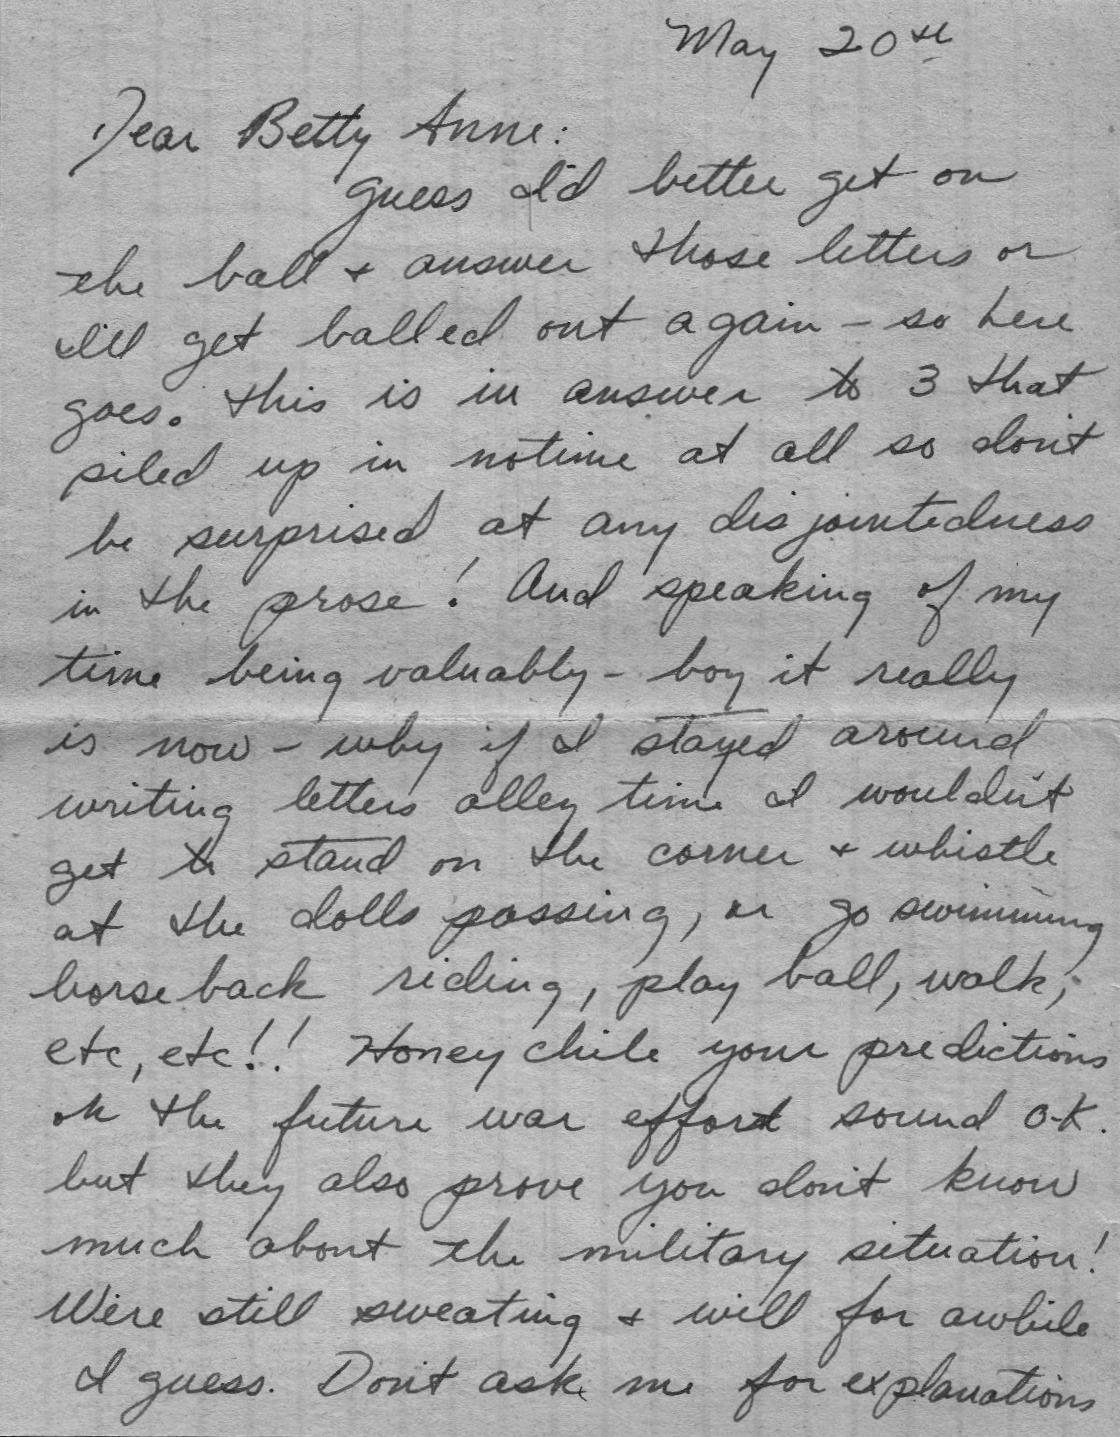 May 20th
Dear Betty Anne:
Guess I'd better get on
the ball + answer those letters or
I'll get balled out again - so here
goes. This is in answer to 3 that
piled up in notime at all so don't
be surprised at any disjointedness
in the prose! And speaking of my
time being valuably - boy it really
is now - why if I stayed around
writing letters alley time I wouldn't
get to stand on the corner + whistle
at the dolls passing, or go swimming
horseback riding, play ball, walk,
etc, etc!! Honey chile your predictions
on the future war effort sound O.K.
but they also prove you don't know
much about the military situation!
We're still sweating + will for awhile
I guess. Don't ask me for explanations